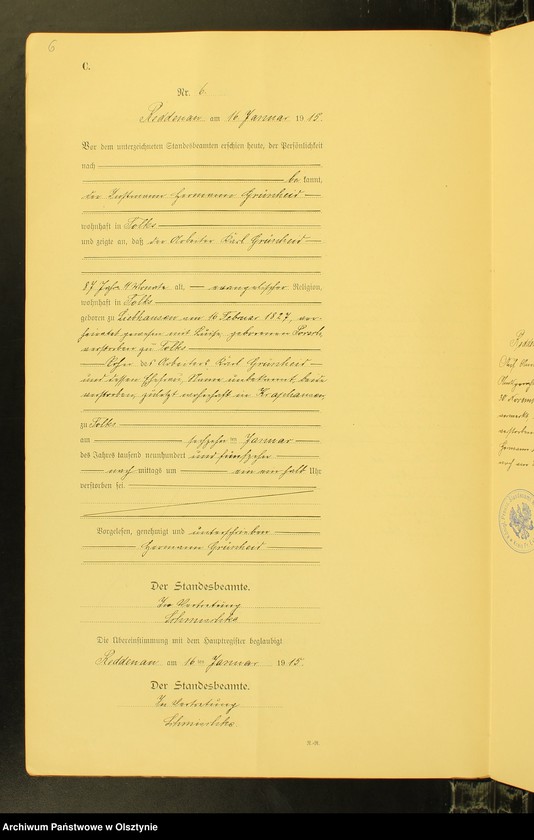 6
C.
Nr. 6
Reddenau am 16 Januar 1915.
Vor dem unterzeichneten Standesbeamten erschien heute, der Persönlichkeit
nach
be kannt,
der Instmann Hermann Grünheid
wohnhaft in Tolks
und zeigte an, daß der Arbeiter Karl Grünheid
87 Jahr 11 Monate alt, evangelischer Religion,
wohnhaft in Tolks
geboren zu am 16 Februar 1827, ver-
heiratet gewesen mit Luise, geborenen
verstorben zu Tolks
Sohn des Arbeiters Karl Grünheid
und dessen Ehefrau, Name unbekannt, beide
verstorben, zuletzt wohnhaft in
zu Tolks
am sechzehnten Januar
des Jahres tausend neunhundert und fünfzehn
nach mittags um ein ein halb Uhr
verstorben sei.
Vorgelesen, genehmigt und unterschrieben
Hermann Grünheid
Der Standesbeamte.
In Vertretung
Die Übereinstimmung mit dem Hauptregister beglaubigt
Reddenau am 16 ten Januar 1915.
Der Standesbeamte.
In Vertretung
Archiwum Państwowe w Olsztynie